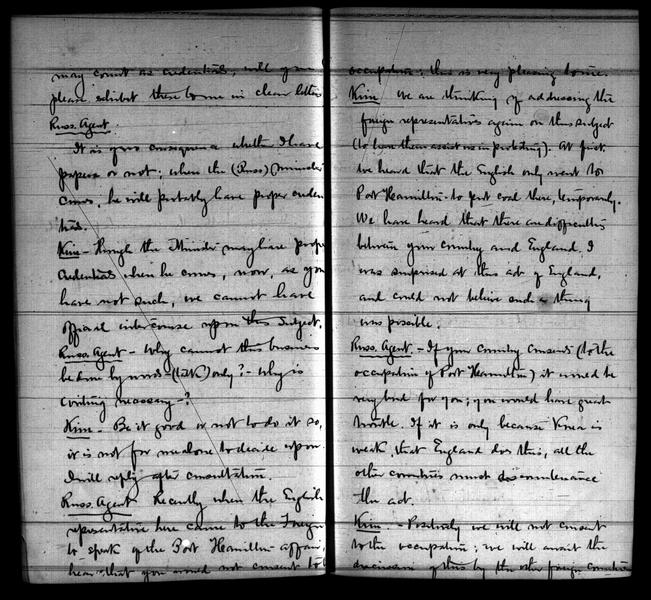 may count as credentials, will you
please exhibit these to me in clear letters
Russ. Agent.
It is of no consequence whether I have
papers or not; when the (Russ) Minister
comes, he will probably have proper creden
tials.
Kim - Though the Minister may have proper
credentials when he comes, now, as you
have not such, we cannot have
official intercourse upon this subject.
Russ. Agent - Why cannot this business
be done by words - (talk) only? - Why is
writing necessary -?
Kim - Be it good or not to do it so,
it is not for me alone to decide upon.
I will reply after consultation.
Russ. Agent - Recently when the English
representative here came to the Foreign
to speak of the Port Hamilton affair,
hear that you would not consent to
occupation; this is very pleasing to me.
Kim We are thinking of addressing the
foreign representatives again on this subject
(to have them assist us in protesting). At first
we heard that the English only went to
Port Hamilton to put coal there, temporarily.
We have heard that there are difficulties
between your country and England. I
was surprised at this act of England,
and could not believe such a thing
was possible.
Russ. Agent. - If your country consents (to the
occupation of Port Hamilton) it would be
very bad for you; you would have great
trouble. If it is only because Korea is
weak, that England does this, all the
other countries must discountenance
the act.
Kim - Positively we will not consent
to the occupation; we will await the
discussion of this by the other foreign countries